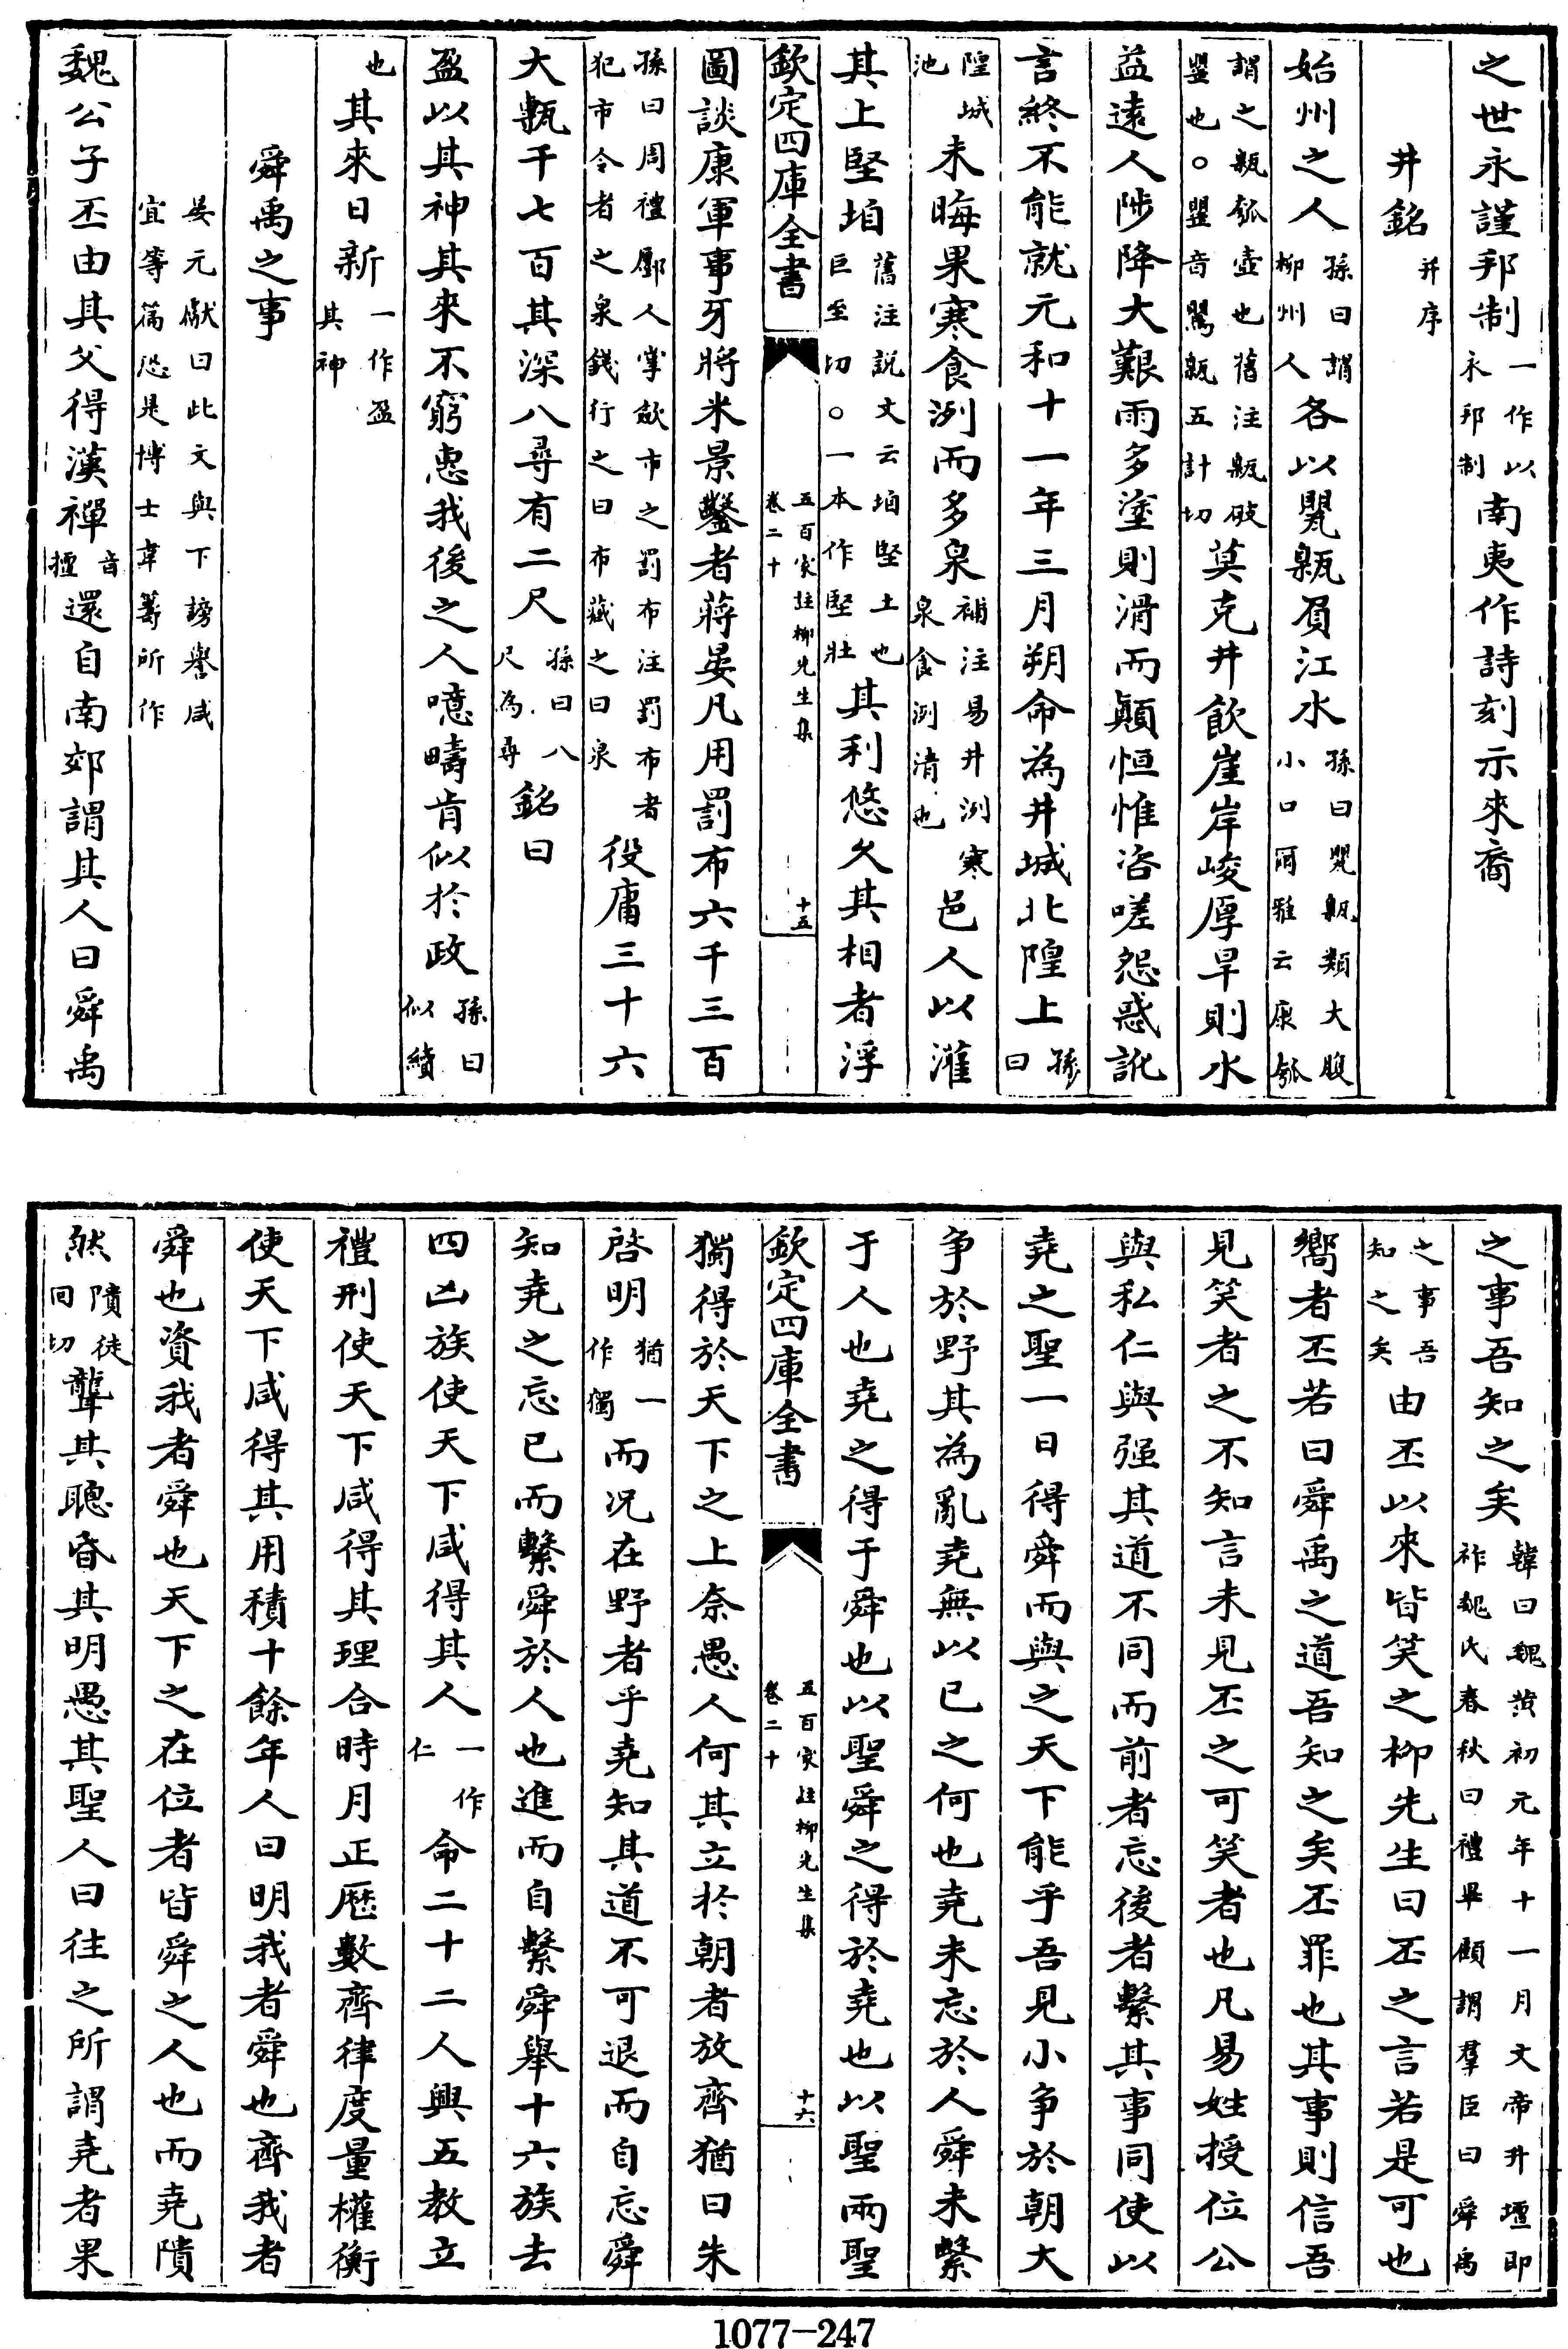 之世永謹邦制一作以永邦制南夷作詩刻示來裔
井銘并序
始州之人孫曰謂柳州人各以甖甈負江水孫曰甖甈類大腹小口爾雅云康瓠
謂之甈瓠壺也舊注甈破甖也○甖音鸎甈五計切莫克井飲崖岸峻厚旱則水
益遠人陟降大艱雨多塗則滑而顛恒惟咨嗟怨惑訛
言終不能就元和十一年三月朔命為井城北隍上孫曰
隍城池未晦果寒食洌而多泉補注易井洌寒泉食洌清也邑人以灌
其上堅垍舊注說文云垍堅土也巨至切○一本作堅壯其利悠久其相者浮
欽定四庫全書 五百家註柳先生集卷二十 十五
圖談康軍事牙將米景鑿者蔣晏凡用罰布六千三百
孫曰周禮廛人掌斂市之罰布注罰布者犯市令者之泉錢行之曰布藏之曰泉役庸三十六
大甎千七百其深八尋有二尺孫曰八尺為尋銘曰
盈以其神其來不窮惠我後之人噫疇肯似於政孫曰似續
也其來日新一作盈其神
舜禹之事
晏元獻曰此文與下謗譽咸宜等篇恐是博士韋籌所作
魏公子丕由其父得漢禪音擅還自南郊謂其人曰舜禹
之事吾知之矣韓曰魏黃初元年十一月文帝升壇即祚魏氏春秋曰禮畢顧謂羣臣曰舜禹
之事吾知之矣由丕以來皆笑之柳先生曰丕之言若是可也
嚮者丕若曰舜禹之道吾知之矣丕罪也其事則信吾
見笑者之不知言未見丕之可笑者也凡易姓授位公
與私仁與强其道不同而前者忘後者繫其事同使以
堯之聖一日得舜而與之天下能乎吾見小爭於朝大
爭於野其為亂堯無以已之何也堯未忘於人舜未繫
于人也堯之得于舜也以聖舜之得於堯也以聖兩聖
欽定四庫全書 五百家註柳先生集卷二十 十六
獨得於天下之上奈愚人何其立於朝者放齊猶曰朱
啓明猶一作獨而况在野者乎堯知其道不可退而自忘舜
知堯之忘已而繫舜於人也進而自繫舜舉十六族去
四凶族使天下咸得其人一作仁命二十二人興五教立
禮刑使天下咸得其理合時月正厯數齊律度量權衡
使天下咸得其用積十餘年人曰明我者舜也齊我者
舜也資我者舜也天下之在位者皆舜之人也而堯隤
然隤徒回切聾其聰昏其明愚其聖人曰往之所謂堯者果
1077-247